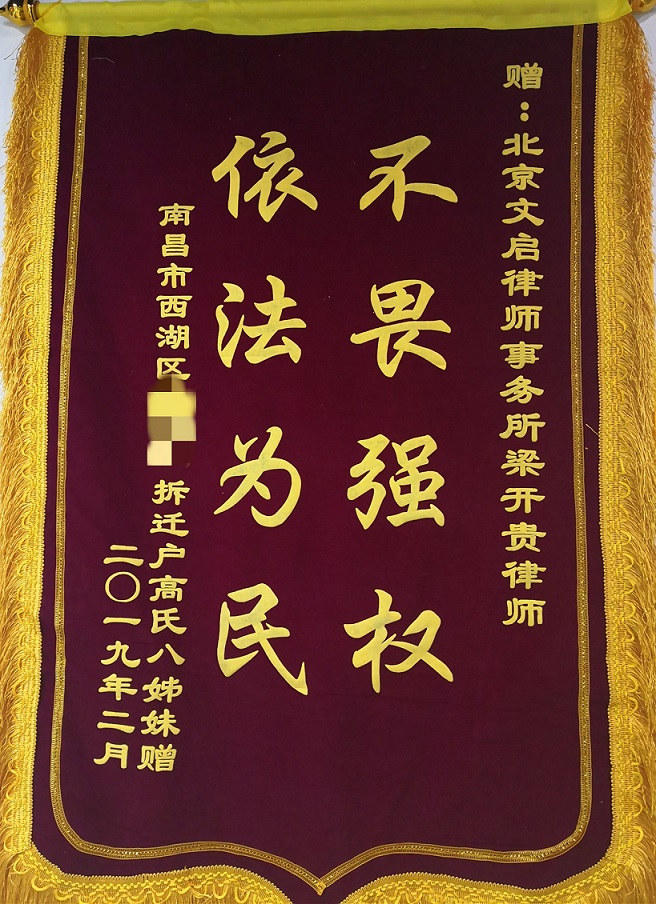 赠：北京文启律师事务所梁开贵律师
不畏强权
依法为民
南昌市西湖区 拆迁户高氏八姊妹赠
二〇一九年二月